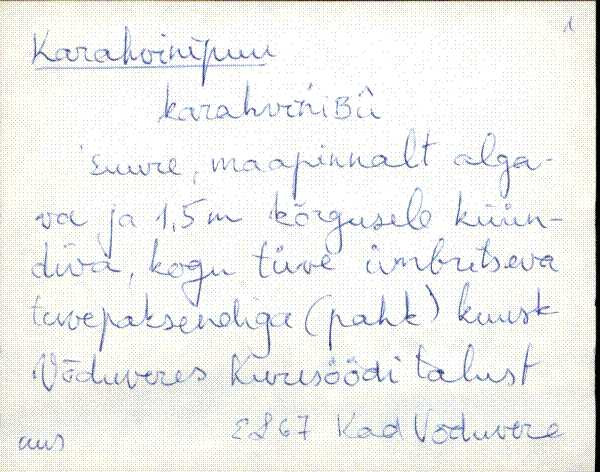 1
Karahvinipuu
karahviniBū
Suure, maapinnalt alga-
va ja 1,5m kõrgusele küün-
diva, kogu tüve ümbritseva
tüvepaksendiga (pahk) kuusk
Võduveres Kuresöödi talust
E867 Kad Võduvere